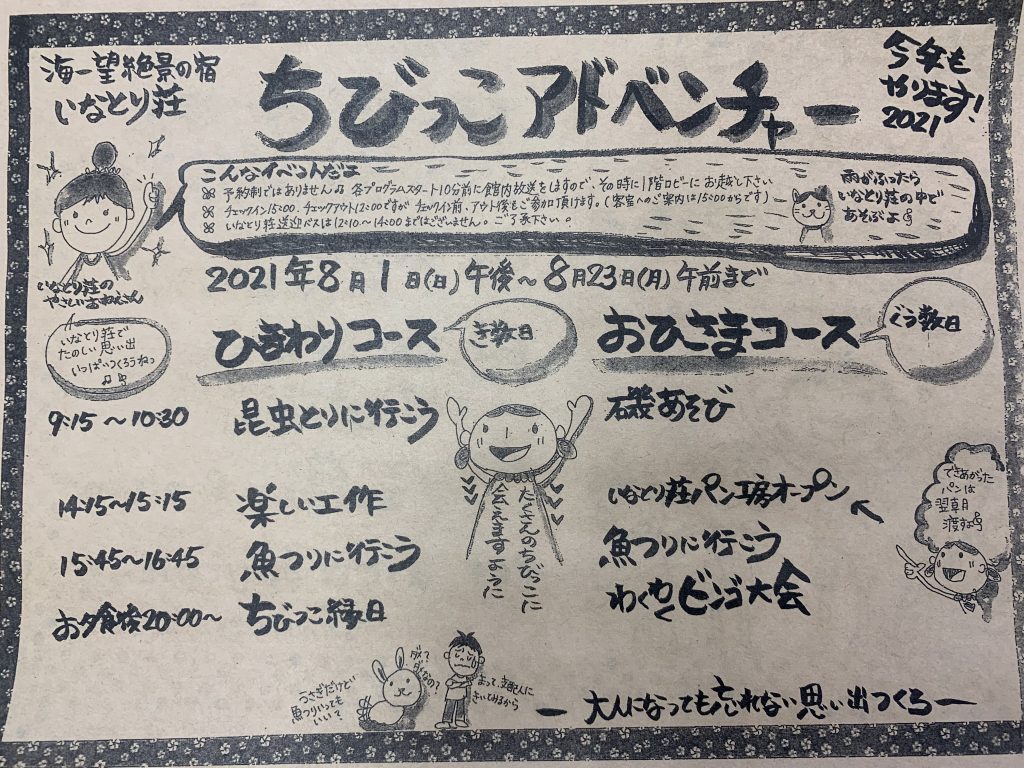 海一望絶景の宿
いなとり荘
ちびっこアドベンチャー
今年も
やります!
2021
こんなイベントだよ
予約制ではありません♫ 各プログラムスタート10分前に館内放送をしますので、その時に1階ロビーにお越し下さい
チェックイン15:00、チェックアウト12:00ですが チェックイン前、アウト後もご参加頂けます。(客室へのご案内は15:00からです)
いなとり荘送迎バスは12:10〜14:00まではございません。ご了承下さい。
雨がふったら
いなとり荘の中で
あそぶよ
いなとり荘の
やさしいおねえさん
2021年8月1日(日)午後〜8月23日(月)午前まで
いなとり荘で
たのしい思い出
いっぱいつくろうねっ
♫♪
ひまわりコース
き数日
おひさまコース
ぐう数日
9:15〜10:30 昆虫とりに行こう 磯あそび
14:15〜15:15 楽しい工作 いなとり荘パン工房オープン
15:45〜16:45 魚つりに行こう 魚つりに行こう
お夕食後20:00〜 ちびっこ縁日 わくわくビンゴ大会
たくさんのちびっこに
会えますように
できあがった
パンは
翌朝
渡すよ
うさぎだけど
魚つりいっても
いい?
ダメ?
ダメなの?
まって、支配人に
きいてみるから
ー 大人になっても忘れない思い出つくろ ー